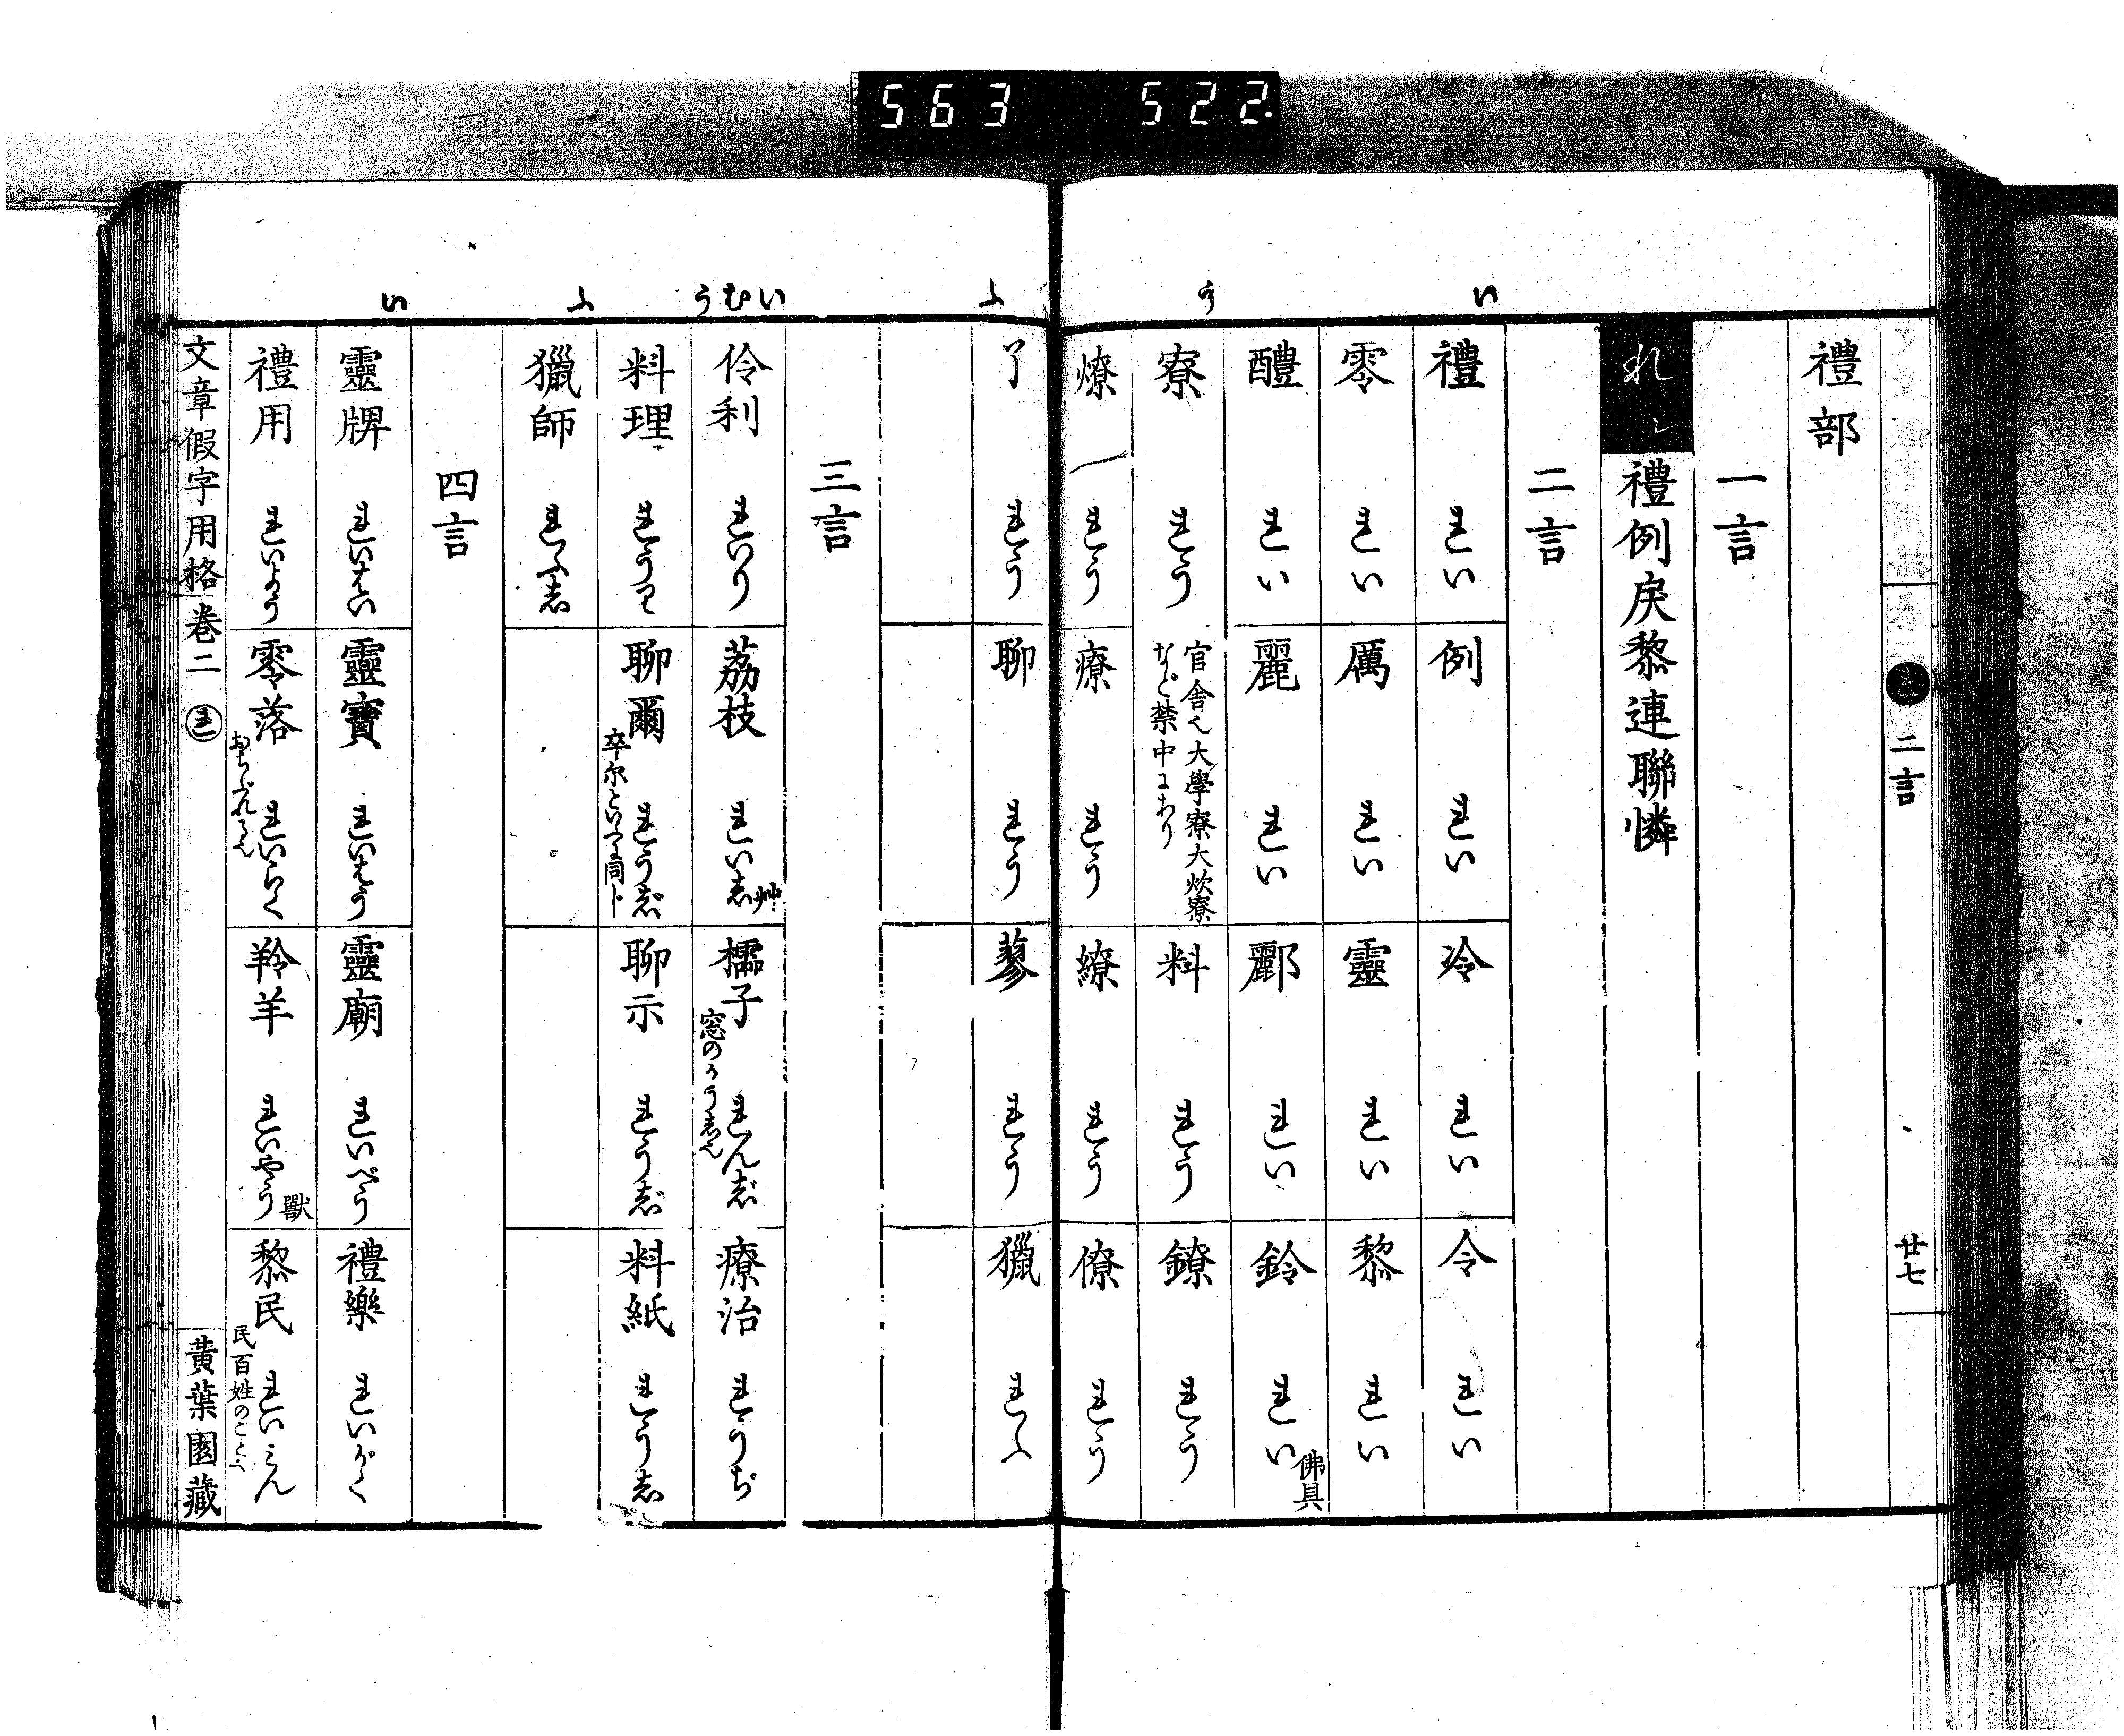 563 522.
れ 二言 廿七
禮部
一言
れ レ 禮例戻黎連聯憐
二言
い
禮 れい 例 れい 冷 れい 令 れい
零 れい 厲 れい 靈 れい 黎 れい
醴 れい 麗 れい 酈 れい 鈴 れい 佛具
う
寮 れう 官舎也大學寮大炊寮など禁中にあり 料 れう 鐐 れう
燎 れう 療 れう 繚 れう 僚 れう
ふ
了 れう 聊 れう 蓼 れう 獵 れふ
三言
いむう
伶利 れいり 荔枝 れいし 艸 櫺子 れんじ 窓のかうし也 療治 れうぢ
料理 れうり 聊爾 れうじ 卒尓といふに同じ 聊示 れうじ 料紙 れうし
ふ
獵師 れふし
四言
い
靈牌 れいはい 靈寶 れいほう 靈廟 れいべう 禮樂 れいがく
禮用 れいよう 零落 れいらく おちぶれる也 羚羊 れいやう 獸 黎民 れいみん 民百姓のこと也
文章假字用格巻二 れ 黄葉園藏